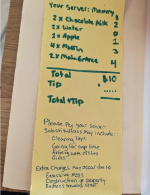 Your server: Mommy
2x Chocolate Milk 2
2x Water 0
2x Apple 1
4x Muffin 3
2x Main Entree 4
Total $10
Tip
Total w/Tip
Please Pay your server
Substitutions may include:
Clearing toys
Going for nap time
Extra Charges may occur due to
Excessive Mess
Destruction of property
Rudeness towards staff